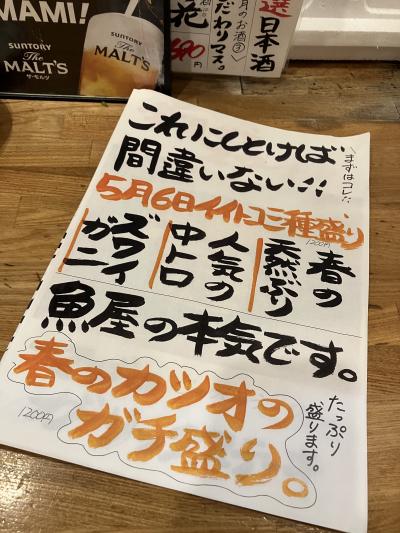 MAMI!
SUNTORY
The
MALT'S
ザ・モルツ
SUNTORY
The
MALT'S
選
日本酒
月のお酒③
だわりマス。
花
690円
これにしとけば
間違いない!!
\まずはコレ!!/
5月6日イイトコ三種盛り
1200円
春の
天然ぶり
人気の
中トロ
ズワイ
ガニ
魚屋の本気です。
春のカツオの
ガチ盛り。
1200円
たっぷり
盛ります。